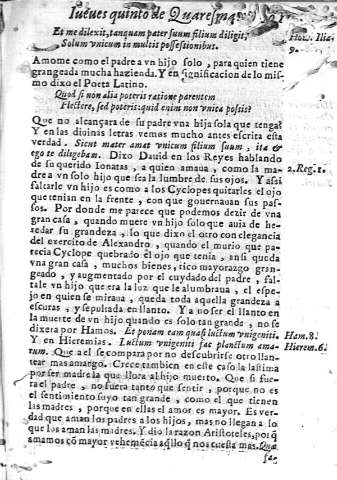 Iueues quinto de Quaresma,
Et me dilexit, tanquam pater suum filium diligit,
Solum vnicum in multis possessionibus.
Hom. Ilia.
9.
Amome como el padre a vn hijo solo, para quien tiene
grangeada mucha hazienda. Y en significacion de lo mis-
mo dixo el Poeta Latino.
Quod si non alia poteris ratione parentem
Flectere, sed poteris: quid enim non vnica possit?
Que no alcançara de su padre vna hija sola que tenga?
Y en las diuinas letras vemos mucho antes escrita esta
verdad. Sicut mater amat vnicum filium suum, ita &
ego te diligebam. Dixo Dauid en los Reyes hablando
de su querido Ionatas, a quien amaua, como la ma-
dre a vn solo hijo que es la lumbre de sus ojos. Y assi
faltarle vn hijo es como a los Cyclopes quitarles el ojo
que tenian en la frente, con que gouernauan sus pas-
sos. Por donde me parece que podemos dezir de vna
gran casa, quando muere vn hijo solo que auia de he-
redar su grandeza, lo que dixo el otro con elegancia
del exercito de Alexandro, quando el murio que pa-
recia Cyclope quebrado el ojo que tenia, ansi queda
vna gran casa, muchos bienes, rico mayorazgo gran-
geado, y augmentado por el cuydado del padre, fal-
tale vn hijo que era la luz que le alumbraua, el espe-
jo en quien se miraua, queda toda aquella grandeza a
escuras, y sepultada en llanto. Y a no ser el llanto en
la muerte de vn hijo quando es solo tan grande, no se
dixera por Hamos. Et ponam tam quasi luctum vnigeniti.
Y en Hieremias. Luctum vnigeniti fac planctum ama-
rum. Que a el se compara por no descubrirse otro llan-
to mas amargo. Crece tambien en este caso la lastima
por ser madre la que llora al hijo muerto. Que si fue-
ra el padre, no fuera tanto que sentir, porque no es
el sentimiento suyo tan grande, como el que tienen
las madres, porque en ellas el amor es mayor. Es ver-
dad que aman los padres a los hijos, mas no llegan a lo
que los aman las madres. Y dio la razon Aristoteles, porq̃
amamos cõ mayor vehemẽcia aq̃llo q̃ nos cuesta mas. Qua
2. Reg. 1.
Ham. 8.
Hierem. 6.